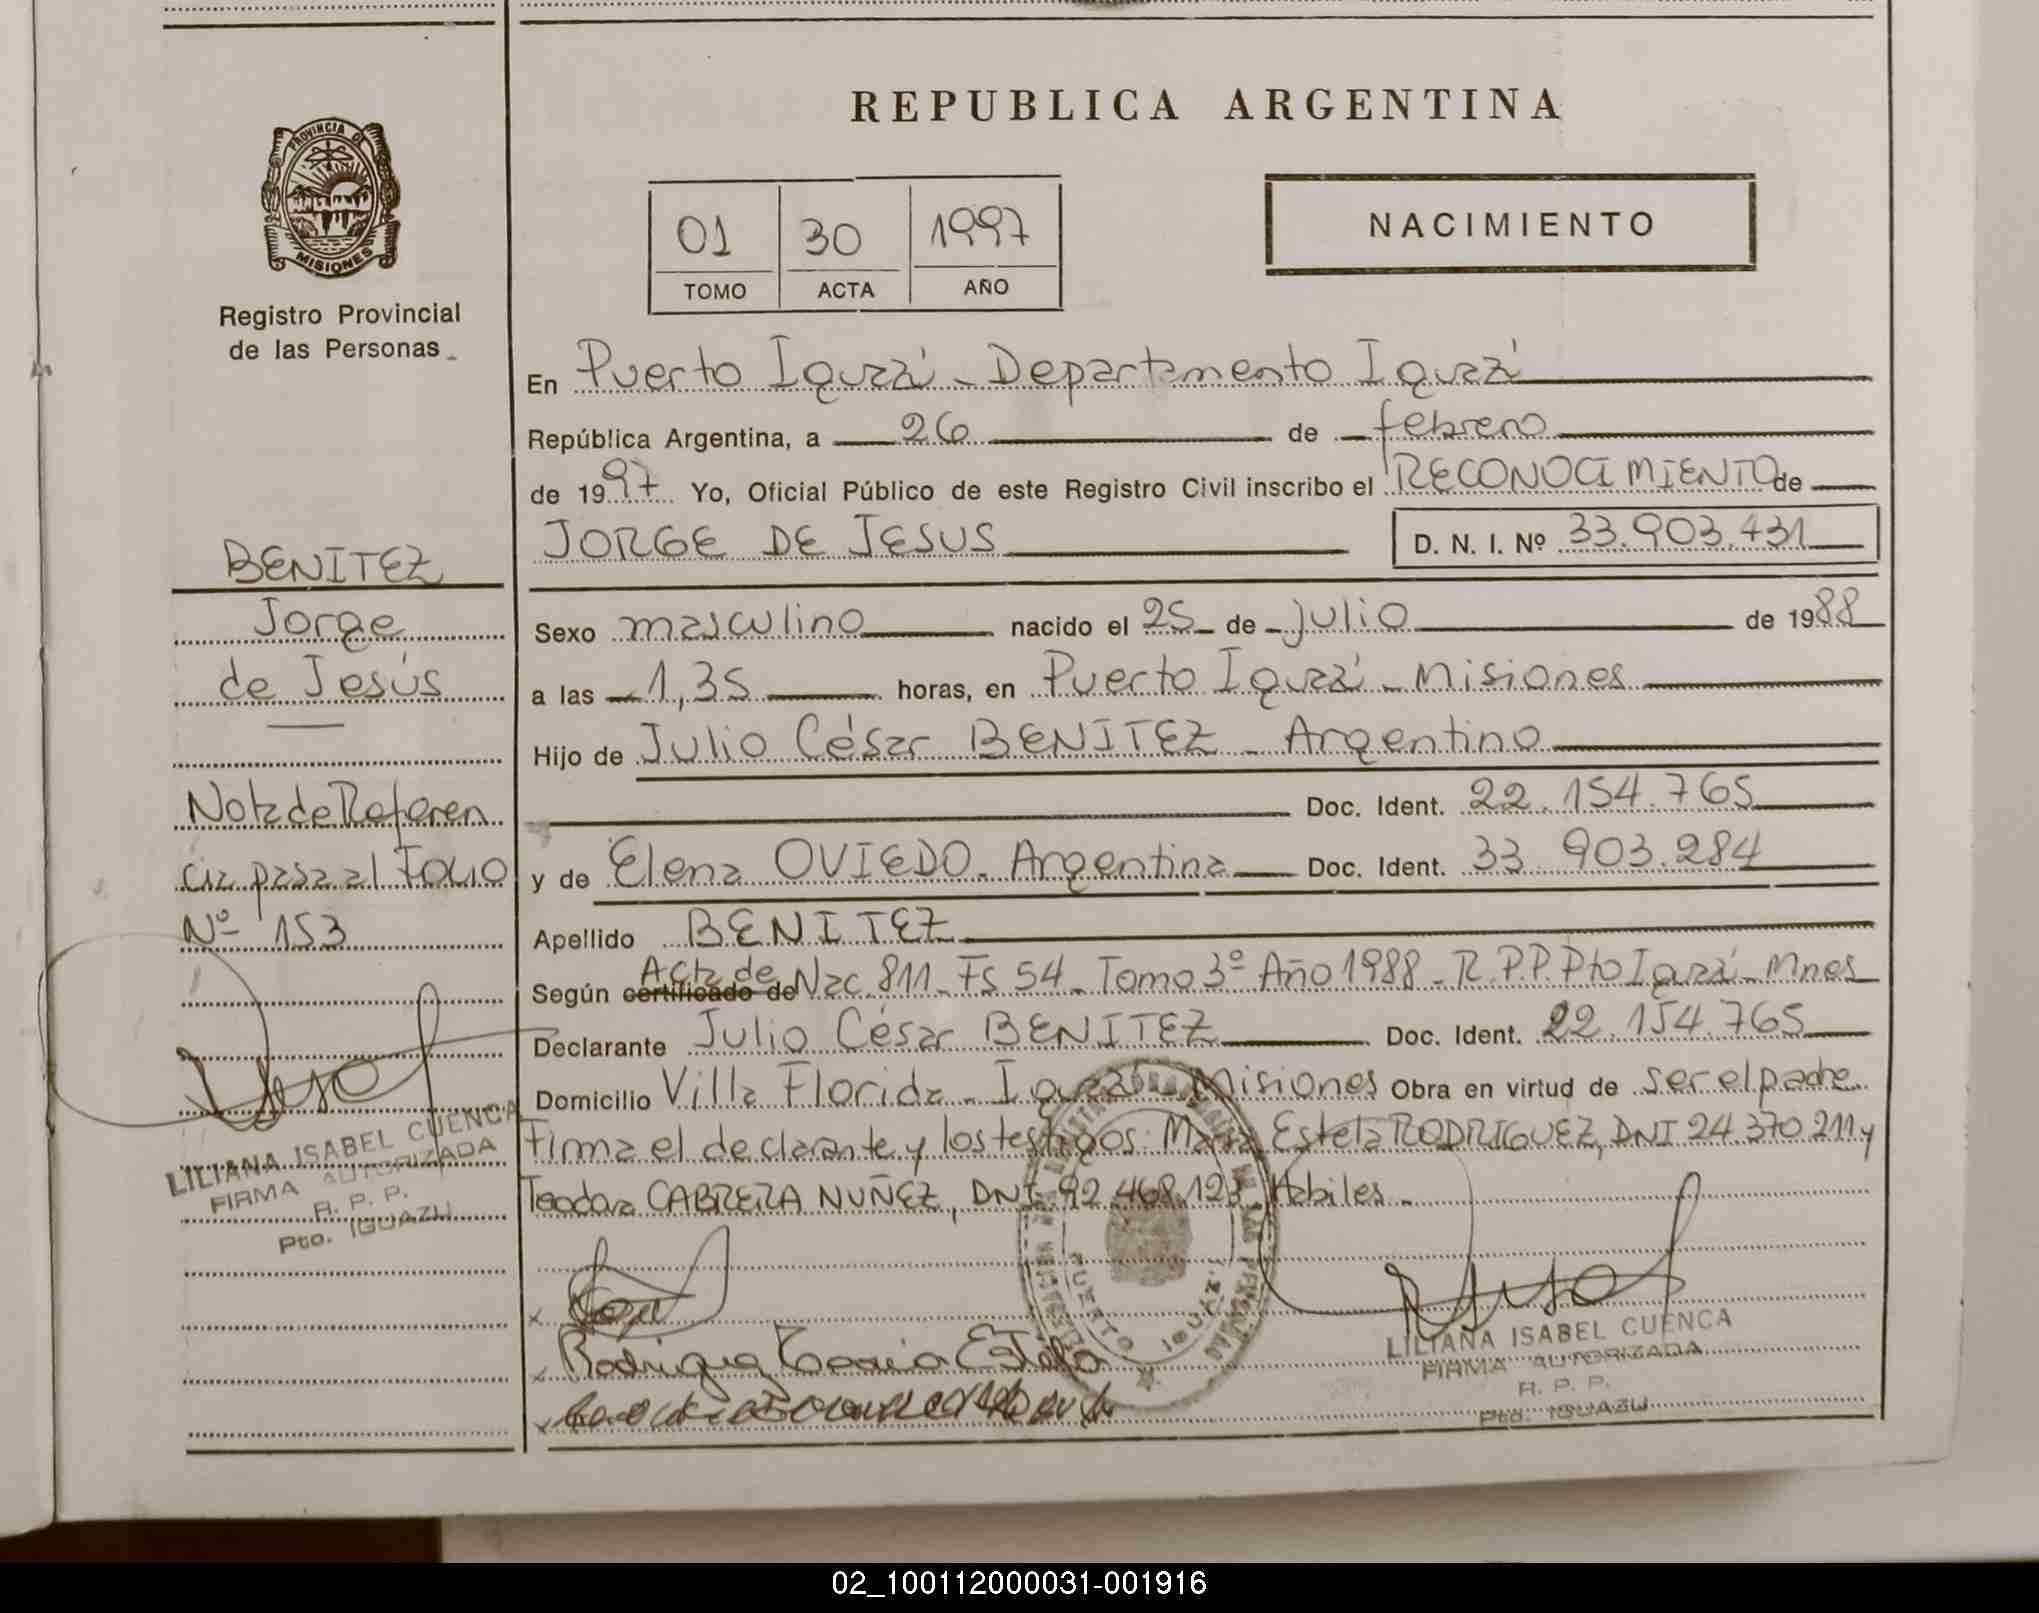 REPUBLICA ARGENTINA
PROVINCIA D
MISIONES
Registro Provincial
de las Personas
01 30 1997
TOMO ACTA AÑO
NACIMIENTO
En Puerto Iguazú - Departamento Iguazú
República Argentina, a 26 de febrero
de 1997 Yo, Oficial Público de este Registro Civil inscribo el RECONOCIMIENTO de
JORGE DE JESUS D. N. I. Nº 33.903.431
BENITEZ
Jorge
de Jesús
Sexo masculino nacido el 25 de julio de 1988
a las 1,35 horas, en Puerto Iguazú - Misiones
Hijo de Julio César BENITEZ - Argentino
Doc. Ident. 22.154.765
y de Elena OVIEDO. Argentina Doc. Ident. 33 903.284
Apellido BENITEZ
Según certificado de Acta de Nac 811 - Fs 54 - Tomo 3º Año 1988 - R.P.P. Pto Iguazú - Mnes
Declarante Julio César BENITEZ Doc. Ident. 22.154.765
Domicilio Villa Florida - Iguazú - Misiones Obra en virtud de ser el padre
Firma el declarante y los testigos: María Estela RODRIGUEZ, DNI 24 370 211 y
Teodora CABRERA NUÑEZ, DNI 92.468.123 Hábiles -
Nota de Referen
cia pasa al Folio
Nº 153
LILIANA ISABEL CUENCA
FIRMA AUTORIZADA
R. P. P.
Pto. IGUAZU
PUERTO IGUAZU
Rodriguez Maria Estela
LILIANA ISABEL CUENCA
FIRMA AUTORIZADA
R. P. P.
Pto. IGUAZU
02_100112000031-001916